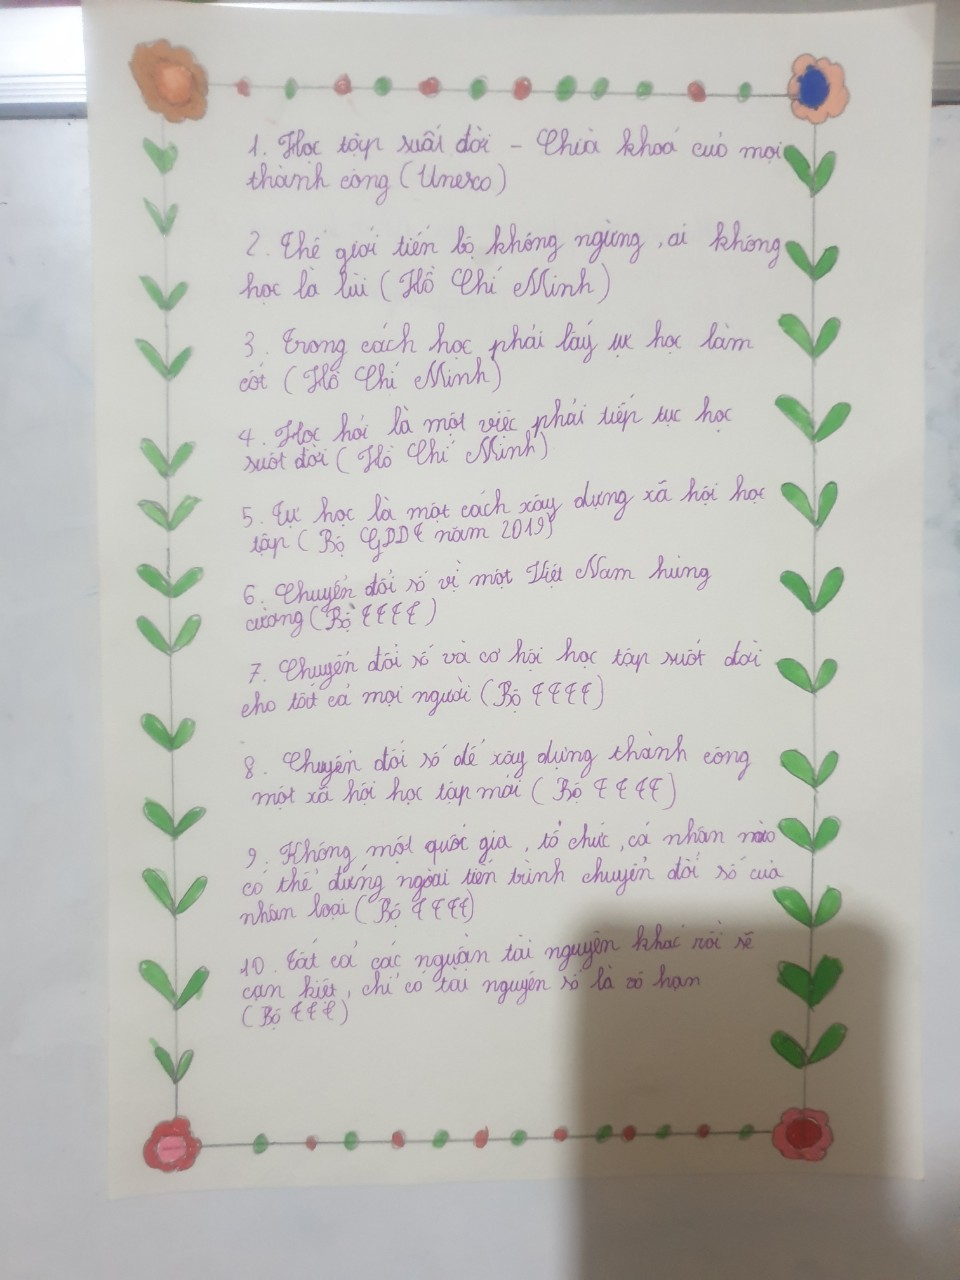 1. Học tập suất đời - Chià khoá củo mọi
thành công (Unesco)
2. Thế giới tiến bộ không ngừng, ai không
học là lùi (Hồ Chí Minh)
3. Trong cách học phải lấy tự học làm
cốt (Hồ Chí Minh)
4. Học hỏi là một việc phải tiếp tục học
suốt đời (Hồ Chí Minh)
5. Tự học là một cách xây dựng xã hội học
tập (Bộ GDDT năm 2019)
6. Chuyển đổi số vì một Việt Nam hùng
cường (Bộ TTTT)
7. Chuyển đổi số và cơ hội học tập suốt đời
cho tất cả mọi người (Bộ TTTT)
8. Chuyển đổi số để xây dựng thành công
một xã hội học tập mới (Bộ TTTT)
9. Không một quốc gia, tổ chức, cá nhân nào
có thể đứng ngoài tiến trình chuyển đổi số của
nhân loại (Bộ TTTT)
10. Tất cả các nguồn tài nguyên khác rồi sẽ
cạn kiệt, chỉ có tài nguyên số là vô hạn
(Bộ TTT)